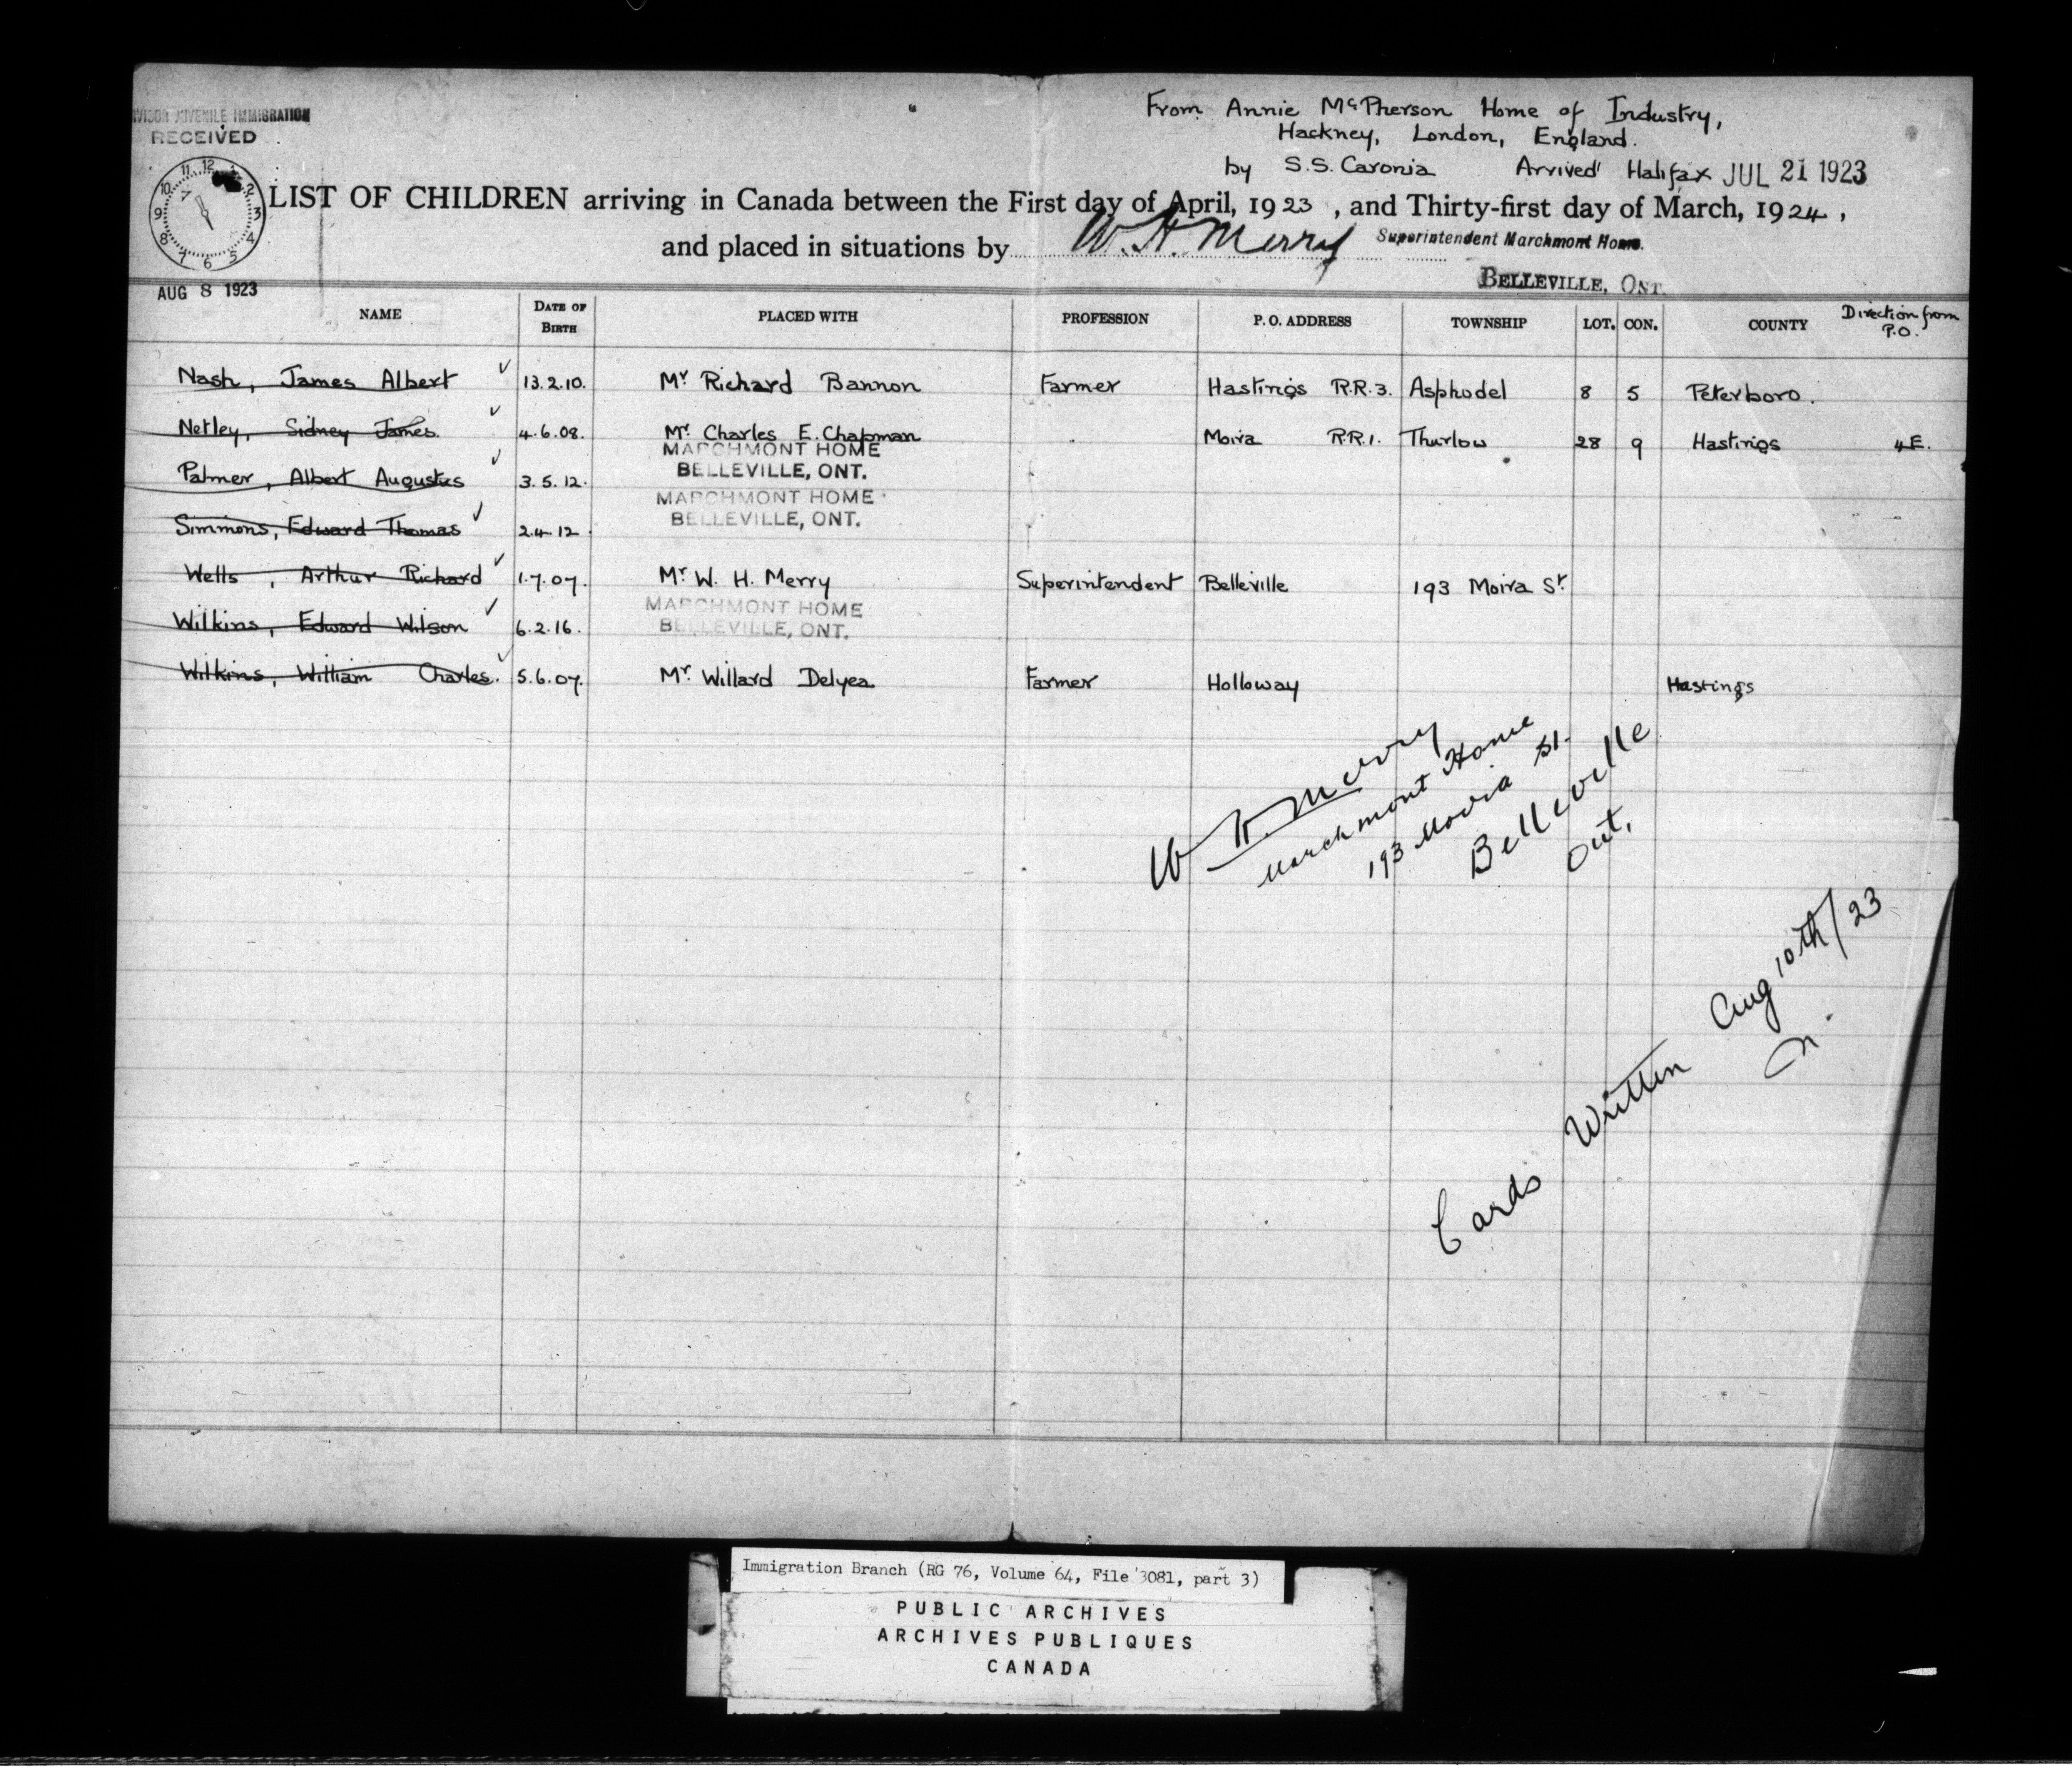 JUVENILE IMMIGRATION
RECEIVED
AUG 8 1923
From Annie McPherson Home of Industry,
Hackney, London, England.
by S.S. Caronia Arrived Halifax JUL 21 1923
LIST OF CHILDREN arriving in Canada between the First day of April, 1923, and Thirty-first day of March, 1924,
and placed in situations by W. H. Merry Superintendent Marchmont Home.
BELLEVILLE, ONT.
NAME DATE OF BIRTH PLACED WITH PROFESSION P. O. ADDRESS TOWNSHIP LOT. CON. COUNTY Direction from P.O.
Nash, James Albert 13.2.10. Mr Richard Bannon Farmer Hastings R.R.3. Asphodel 8 5 Peterboro.
Netley, Sidney James. 4.6.08. Mr. Charles E. Chapman " Moira R.R.1. Thurlow 28 9 Hastings 4E.
Palmer, Albert Augustus 3.5.12. MARCHMONT HOME BELLEVILLE, ONT.
Simmons, Edward Thomas 2.4.12. MARCHMONT HOME BELLEVILLE, ONT.
Wells, Arthur Richard 1.7.07. Mr W. H. Merry Superintendent Belleville 193 Moira St
Wilkins, Edward Wilson 6.2.16. MARCHMONT HOME BELLEVILLE, ONT.
Wilkins, William Charles. 5.6.07. Mr. Willard Delyea Farmer Holloway Hastings
W. H. Merry
Marchmont Home
193 Moira St.
Belleville
Ont.
Cards Written Aug 10th/23
Immigration Branch (RG 76, Volume 64, File 3081, part 3)
PUBLIC ARCHIVES
ARCHIVES PUBLIQUES
CANADA